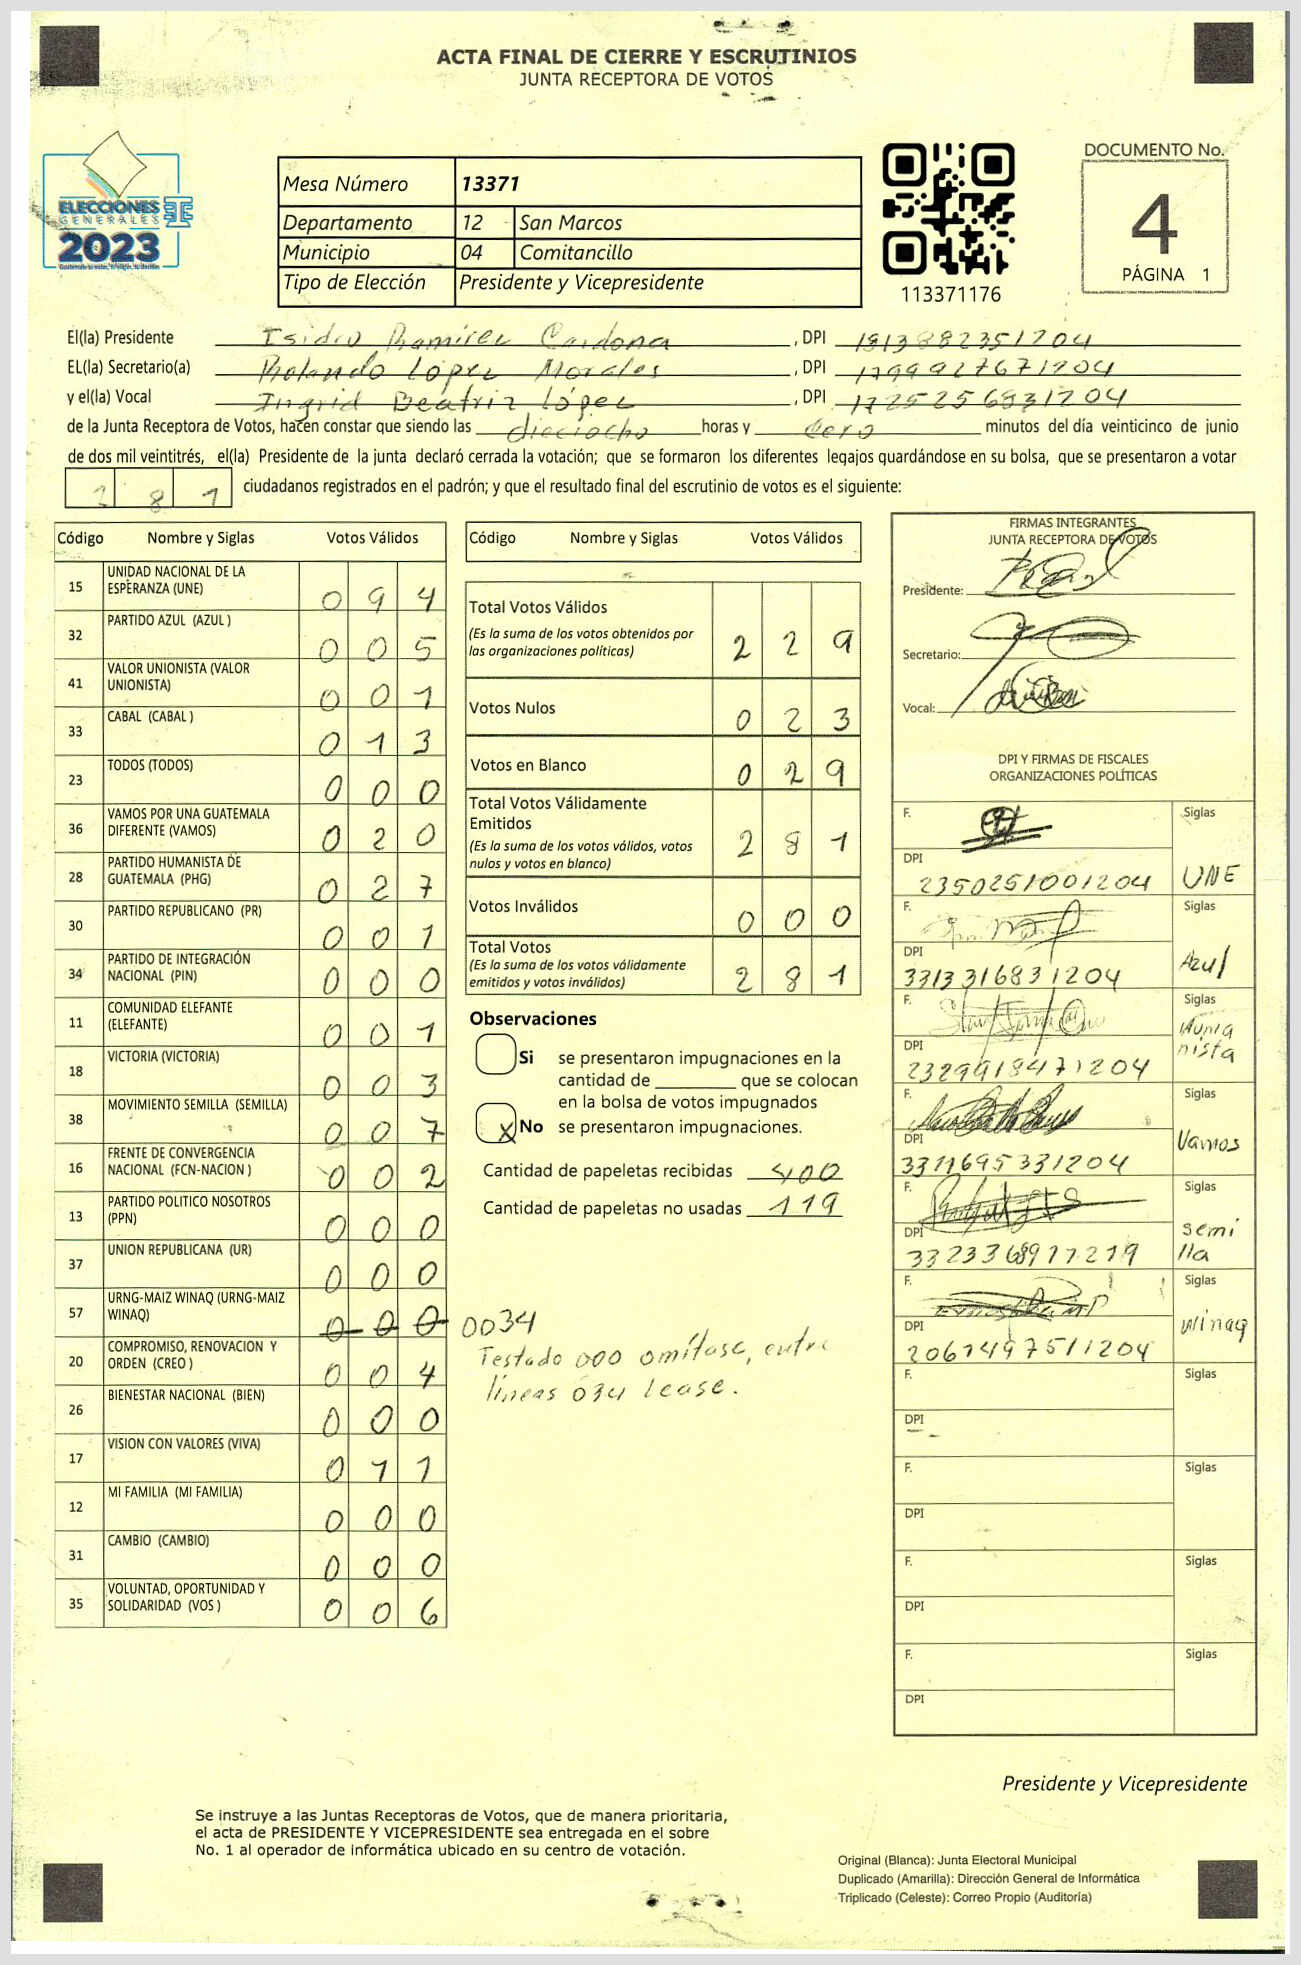 ACTA FINAL DE CIERRE Y ESCRUTINIOS
JUNTA RECEPTORA DE VOTOS
ELECCIONES
GENERALES
2023
Mesa Número 13371
Departamento 12 San Marcos
Municipio 04 Comitancillo
Tipo de Elección Presidente y Vicepresidente
113371176
DOCUMENTO No.
4
PÁGINA 1
El(la) Presidente Isidro Ramirez Cardona, DPI 1813882351204
EL(la) Secretario(a) Rolando López Morales, DPI 1799927671204
y el(la) Vocal Ingrid Beatriz López, DPI 1725256831204
de la Junta Receptora de Votos, hacen constar que siendo las dieciocho horas y cero minutos del día veinticinco de junio
de dos mil veintitrés, el(la) Presidente de la junta declaró cerrada la votación; que se formaron los diferentes legajos quardándose en su bolsa, que se presentaron a votar
281 ciudadanos registrados en el padrón; y que el resultado final del escrutinio de votos es el siguiente:
Código Nombre y Siglas Votos Válidos
15 UNIDAD NACIONAL DE LA ESPERANZA (UNE) 094
32 PARTIDO AZUL (AZUL ) 005
41 VALOR UNIONISTA (VALOR UNIONISTA) 001
33 CABAL (CABAL ) 013
23 TODOS (TODOS) 000
36 VAMOS POR UNA GUATEMALA DIFERENTE (VAMOS) 020
28 PARTIDO HUMANISTA DE GUATEMALA (PHG) 027
30 PARTIDO REPUBLICANO (PR) 001
34 PARTIDO DE INTEGRACIÓN NACIONAL (PIN) 000
11 COMUNIDAD ELEFANTE (ELEFANTE) 001
18 VICTORIA (VICTORIA) 003
38 MOVIMIENTO SEMILLA (SEMILLA) 007
16 FRENTE DE CONVERGENCIA NACIONAL (FCN-NACION ) 002
13 PARTIDO POLITICO NOSOTROS (PPN) 000
37 UNION REPUBLICANA (UR) 000
57 URNG-MAIZ WINAQ (URNG-MAIZ WINAQ) 000 0034
20 COMPROMISO, RENOVACION Y ORDEN (CREO ) 004
26 BIENESTAR NACIONAL (BIEN) 000
17 VISION CON VALORES (VIVA) 011
12 MI FAMILIA (MI FAMILIA) 000
31 CAMBIO (CAMBIO) 000
35 VOLUNTAD, OPORTUNIDAD Y SOLIDARIDAD (VOS ) 006
Código Nombre y Siglas Votos Válidos
Total Votos Válidos 229
(Es la suma de los votos obtenidos por
las organizaciones políticas)
Votos Nulos 023
Votos en Blanco 029
Total Votos Válidamente
Emitidos 281
(Es la suma de los votos válidos, votos
nulos y votos en blanco)
Votos Inválidos 000
Total Votos 281
(Es la suma de los votos válidamente
emitidos y votos inválidos)
Observaciones
Si se presentaron impugnaciones en la
cantidad de ________ que se colocan
en la bolsa de votos impugnados
X No se presentaron impugnaciones.
Cantidad de papeletas recibidas 400
Cantidad de papeletas no usadas 119
Testado 000 omítase, entre
líneas 034 lease.
FIRMAS INTEGRANTES
JUNTA RECEPTORA DE VOTOS
Presidente:
Secretario:
Vocal:
DPI Y FIRMAS DE FISCALES
ORGANIZACIONES POLÍTICAS
F. Siglas
DPI 2350251001204 UNE
F. Siglas
DPI 3313316831204 Azul
F. Siglas
DPI 2329918471204
nista
F. Siglas
DPI 3311695331204 Vamos
F. Siglas
DPI semi
3323368911219 lla
F. Siglas
DPI 2061497511204 Winaq
F. Siglas
DPI
F. Siglas
DPI
F. Siglas
DPI
F. Siglas
DPI
Presidente y Vicepresidente
Se instruye a las Juntas Receptoras de Votos, que de manera prioritaria,
el acta de PRESIDENTE Y VICEPRESIDENTE sea entregada en el sobre
No. 1 al operador de informática ubicado en su centro de votación.
Original (Blanca): Junta Electoral Municipal
Duplicado (Amarilla): Dirección General de Informática
Triplicado (Celeste): Correo Propio (Auditoría)